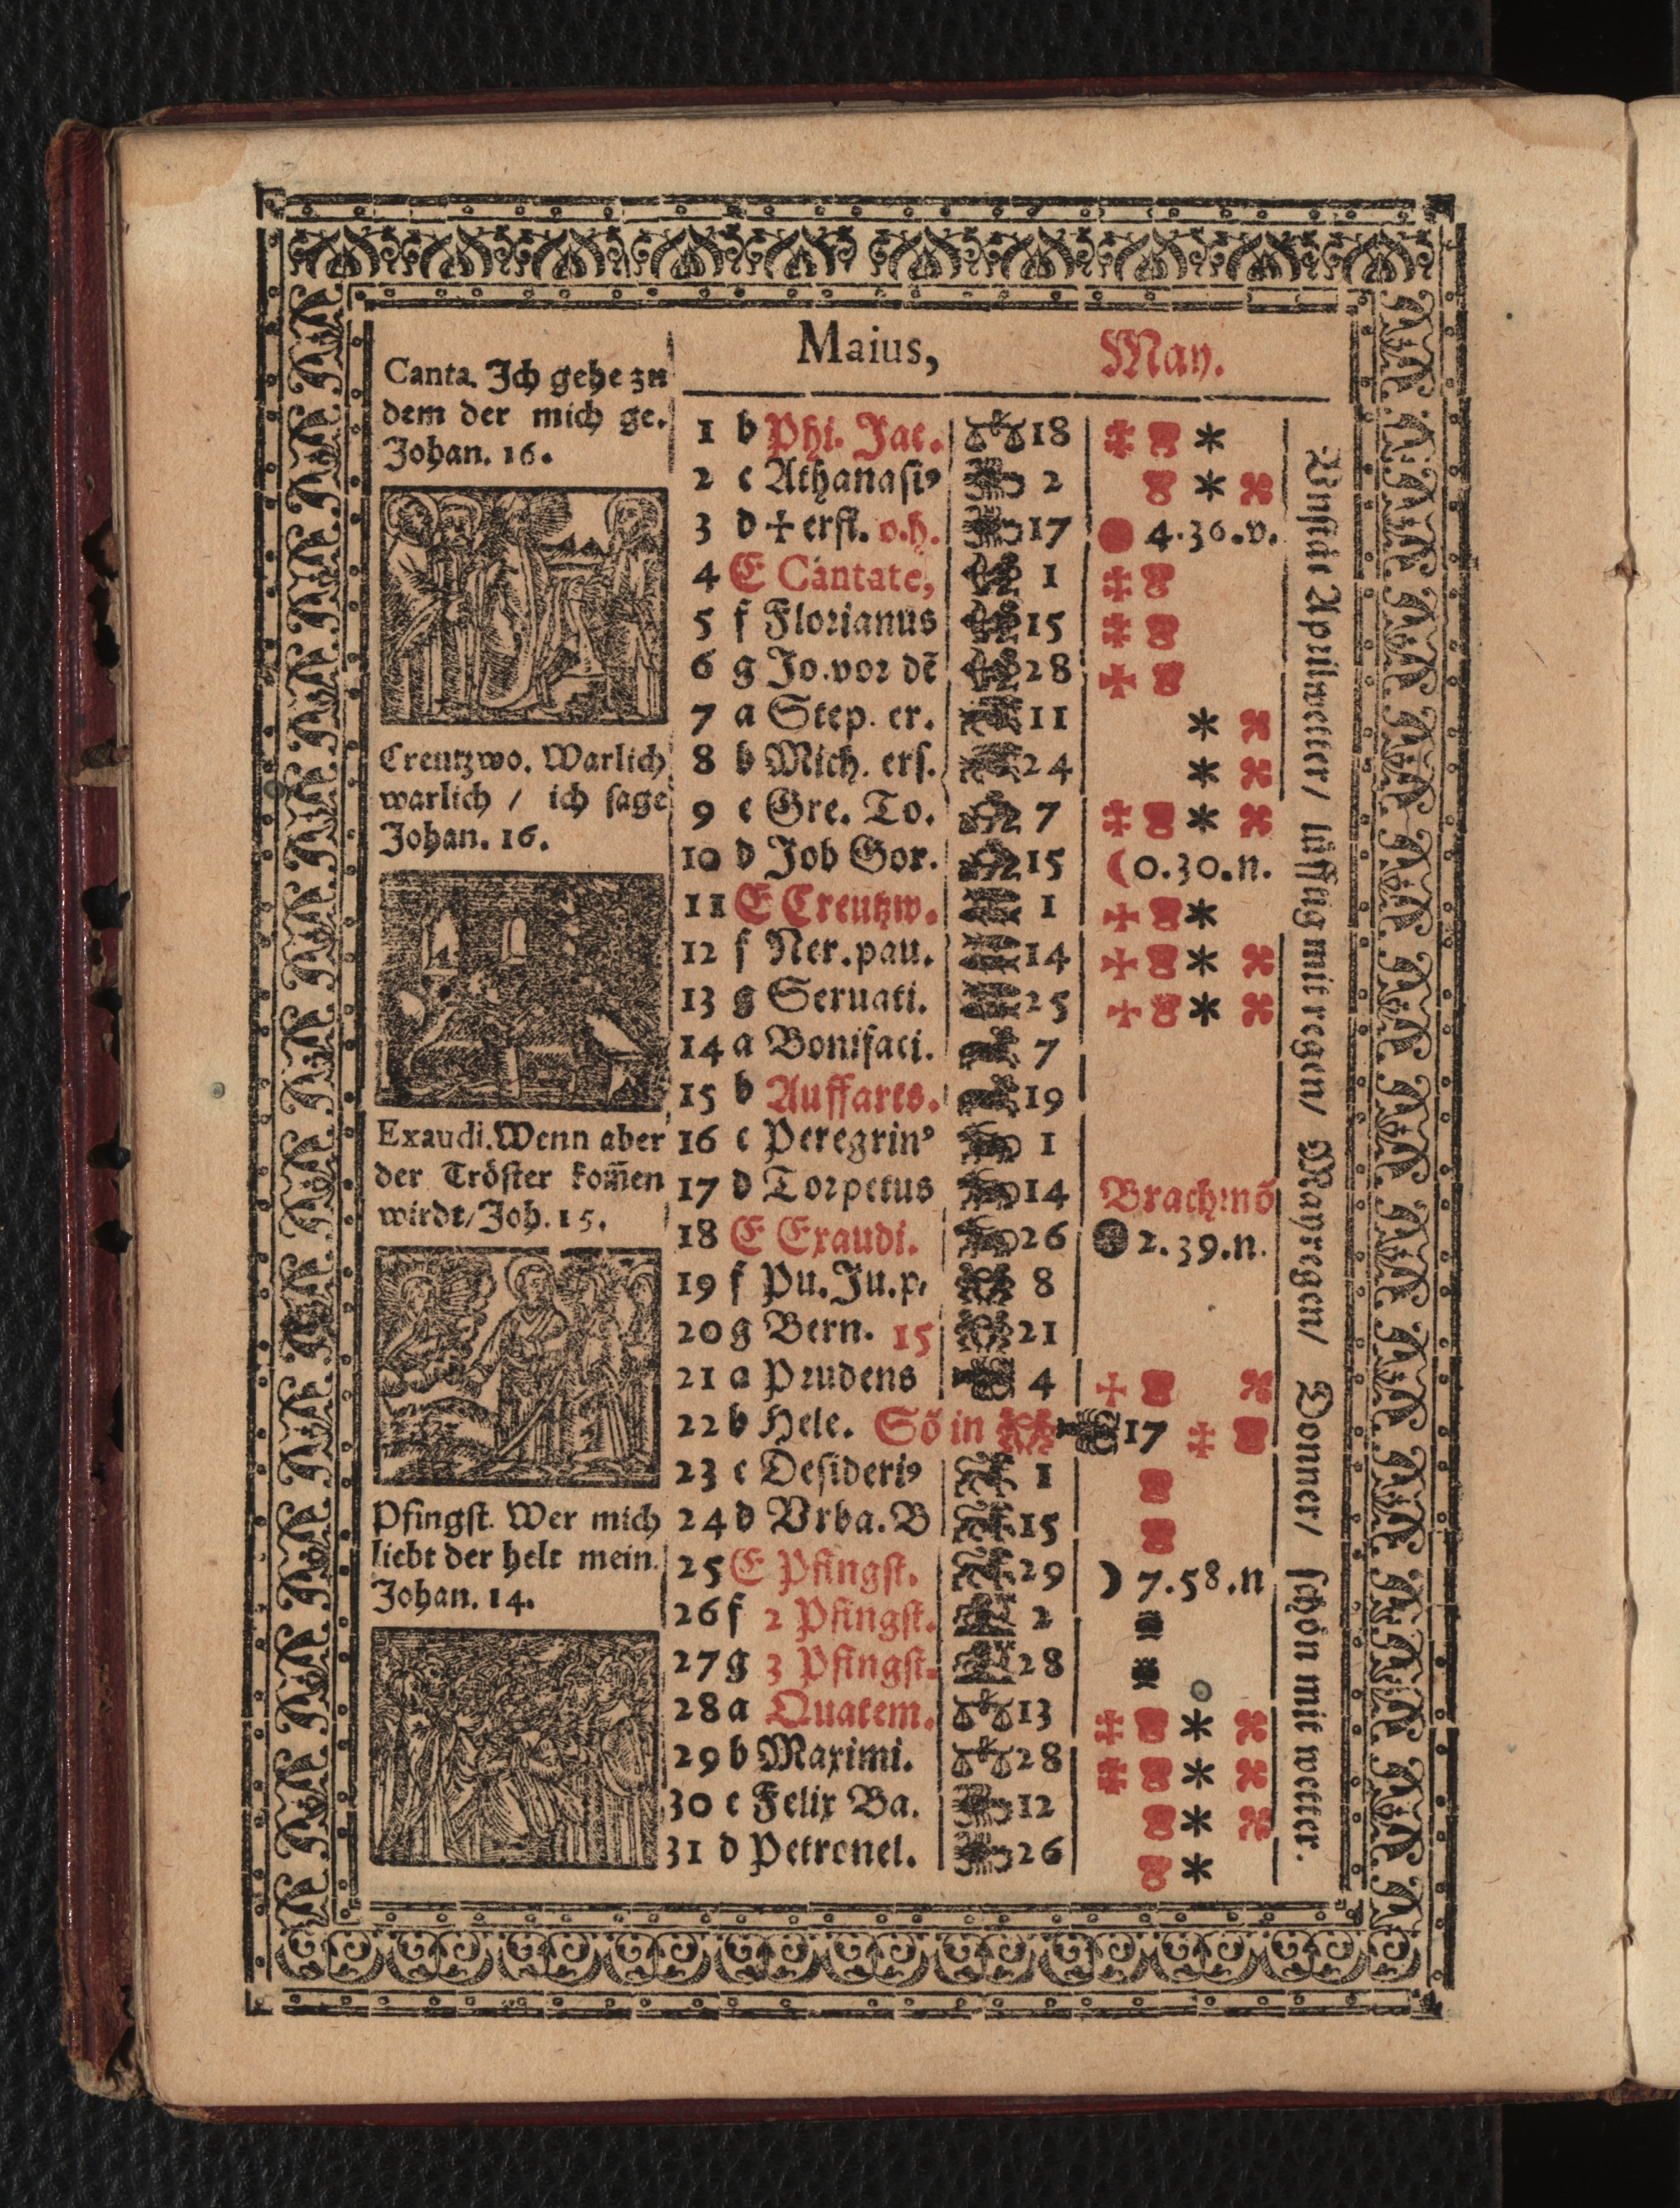 Maius, May.
Canta. Ich gehe zu
dem der mich ge.
Johan. 16.
Creutzwo. Warlich
warlich / ich sage
Johan. 16.
Exaudi. Wenn aber
der Tröster kom̃en
wirdt/ Joh. 15.
Pfingst. Wer mich
liebt der helt mein.
Johan. 14.
1 b Phi. Jac. 18
2 c Athanasi⁹ 2
3 d ✢ erfi. o.h. 17 4.36.v.
4 E Cantate, 1
5 f Florianus 15
6 g Jo.vor dē 28
7 a Step. er. 11
8 b Mich. ers. 24
9 c Gre. To. 7
10 d Job Gor. 15 0.30.n.
11 E Creutzw. 1
12 f Ner.pau. 14
13 g Seruati. 25
14 a Bonifaci. 7
15 b Auffarts. 19
16 c Peregrin⁹ 1
17 d Torpetus 14 Brachmō
18 E Exaudi. 26 2.39.n.
19 f Pu.Ju.p. 8
20 g Bern. 15 21
21 a Prudens 4
22 b Hele. Sō in 17
23 c Desideri⁹ 1
24 d Vrba.B 15
25 E Pfingst. 29 7.58.n
26 f 2 Pfingst. 2
27 g 3 Pfingst. 28
28 a Quatem. 13
29 b Maximi. 28
30 c Felix Ba. 12
31 d Petronel. 26
Unstät Aprilwetter/ lüfftig mit regen/ Mayregen/ Donner/ schön mit wetter.